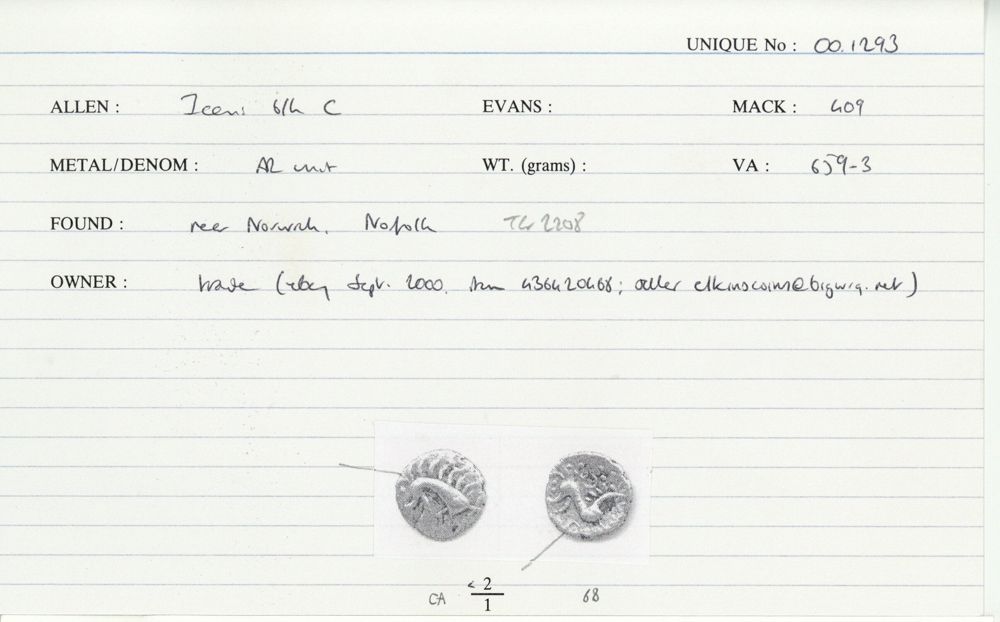 UNIQUE No : 00.1293
ALLEN : Iceni B/h C EVANS : MACK : 409
METAL/DENOM : AR unit WT. (grams) : VA : 659-3
FOUND : near Norwich, Norfolk TG 2208
OWNER : trade (ebay Sept. 2000, item 436420468; seller elkinscoins@bigwig.net)
< 2
CA 1 68